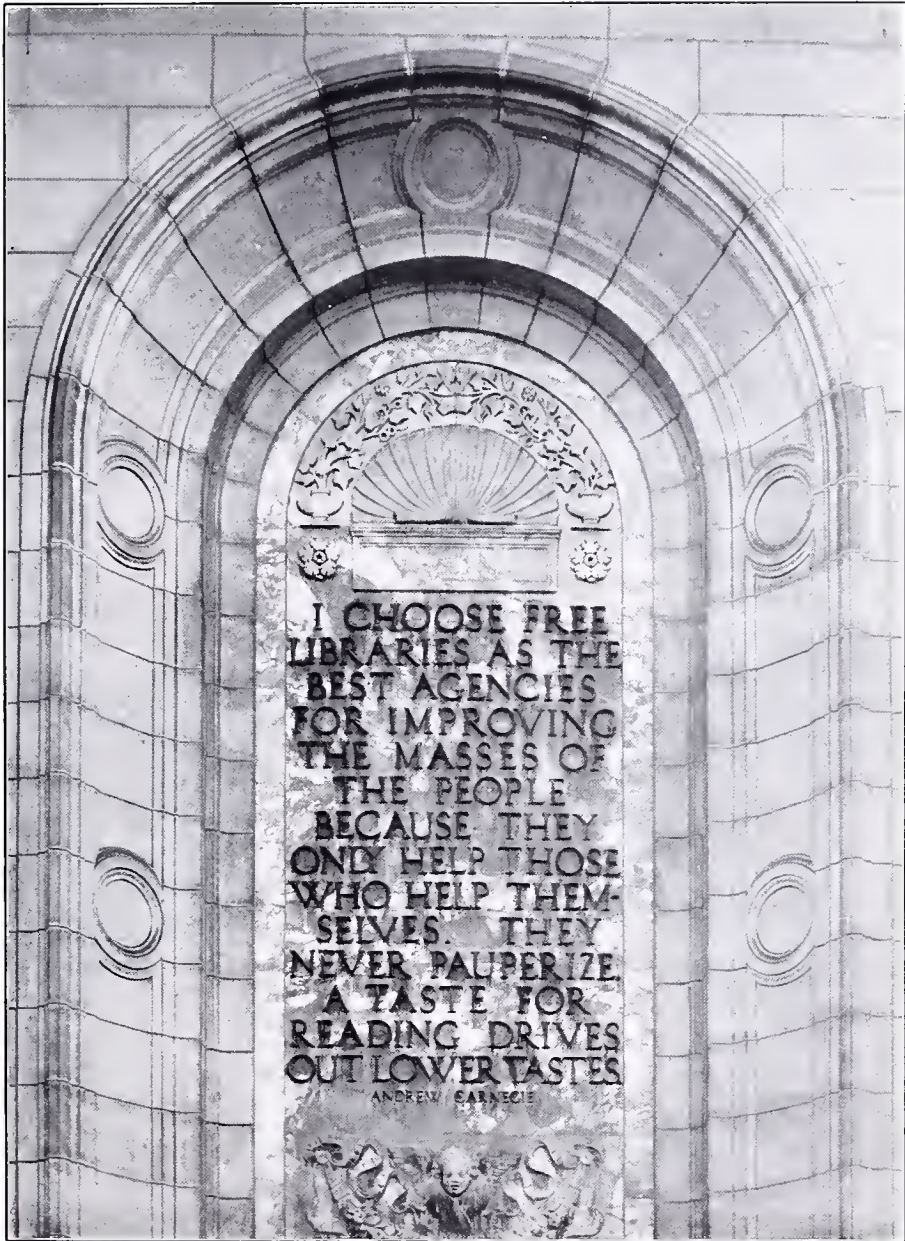 I CHOOSE FREE
LIBRARIES AS THE
BEST AGENCIES
FOR IMPROVING
THE MASSES OF
THE PEOPLE
BECAUSE THEY
ONLY HELP THOSE
WHO HELP THEM-
SELVES. THEY
NEVER PAUPERIZE.
A TASTE FOR
READING DRIVES
OUT LOWER TASTES.
ANDREW CARNEGIE